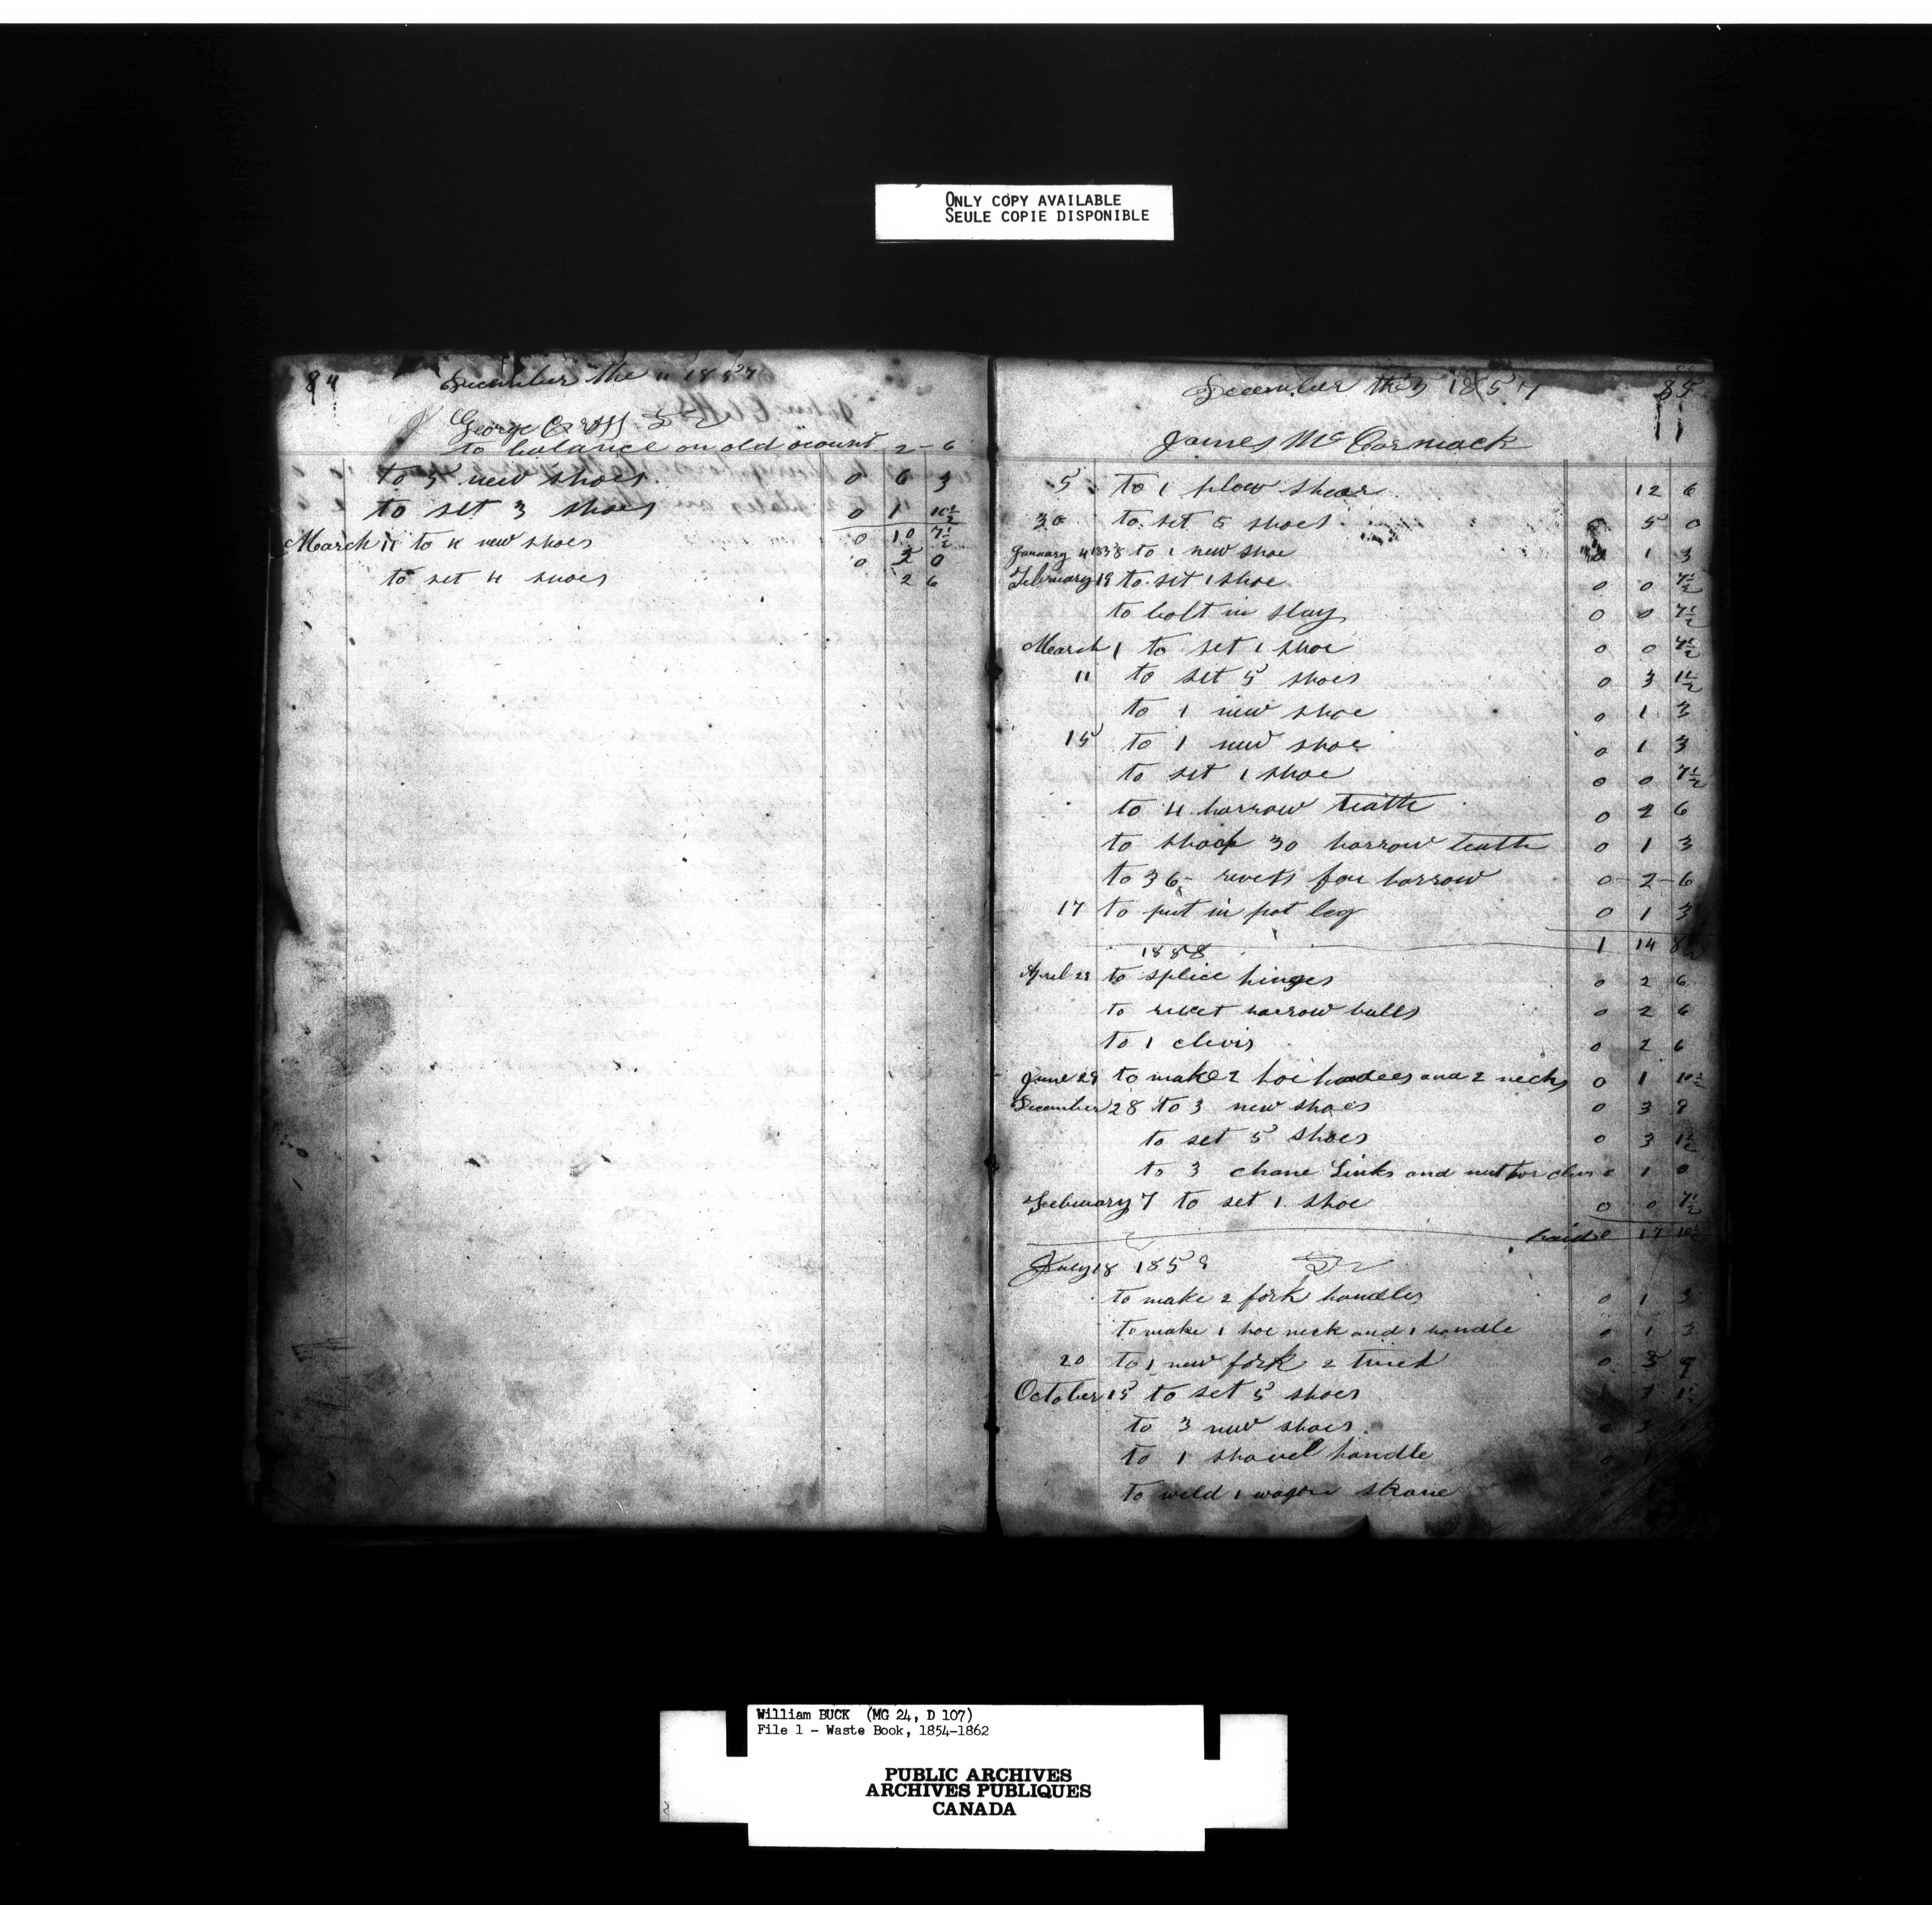 ONLY COPY AVAILABLE
SEULE COPIE DISPONIBLE
84
December the 11 1857
George Cross Dr
to balance on old acount 2-6
to 5 new shoes 0 6 3
to set 3 shoes 0 1 10½
0 10 7½
March 11 to 4 new shoes 0 5 0
to set 4 shoes 2 6
December the 5 1857 85
James McCormack
5 to 1 plow shear 12 6
30 to set 8 shoes 5 0
January 4 1858 to 1 new shoe 0 1 3
February 19 to set 1 shoe 0 0 7½
to bolt in slay 0 0 7½
March 1 to set 1 shoe 0 0 7½
11 to set 5 shoes 0 3 1½
to 1 new shoe 0 1 3
15 to 1 new shoe 0 1 3
to set 1 shoe 0 0 7½
to 4 harrow teath 0 2 6
to shoop 30 harrow teath 0 1 3
to 36 rivets for harrow 0-2-6
17 to put in pot leg 0 1 3
1 14 8½
1858
April 29 to splice hinges 0 2 6
to rivet harrow bulls 0 2 6
to 1 clivis 0 2 6
June 29 to make 2 hoe handles and 2 necks 0 1 10½
December 28 to 3 new shoes 0 3 9
to set 5 shoes 0 3 1½
to 3 chane Links and nut for clivis 0 1 0
Febuary 7 to set 1 shoe 0 0 7½
paid 0 17 10½
July 18 1859 Dr
to make 2 fork handles 0 1 3
to make 1 hoe neck and 1 handle 0 1 3
20 to 1 new fork 2 tined 0 3 9
October 15 to set 5 shoes 3 1½
to 3 new shoes 0 3
to 1 shovel handle 0
to weld 1 wagon skane
William BUCK (MG 24, D 107)
File 1 - Waste Book, 1854-1862
PUBLIC ARCHIVES
ARCHIVES PUBLIQUES
CANADA